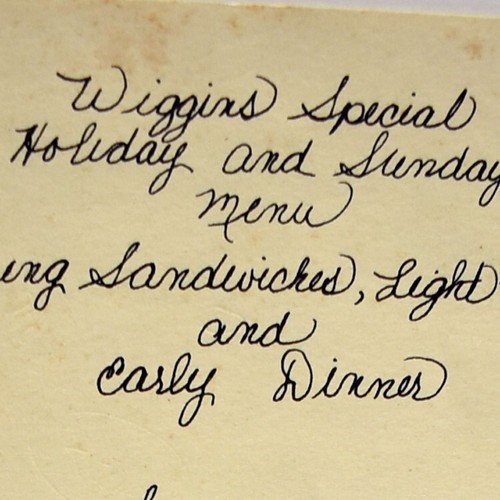 Wiggins Special
Holiday and Sunday
Menu
Sandwiches, Light
and
Early Dinner